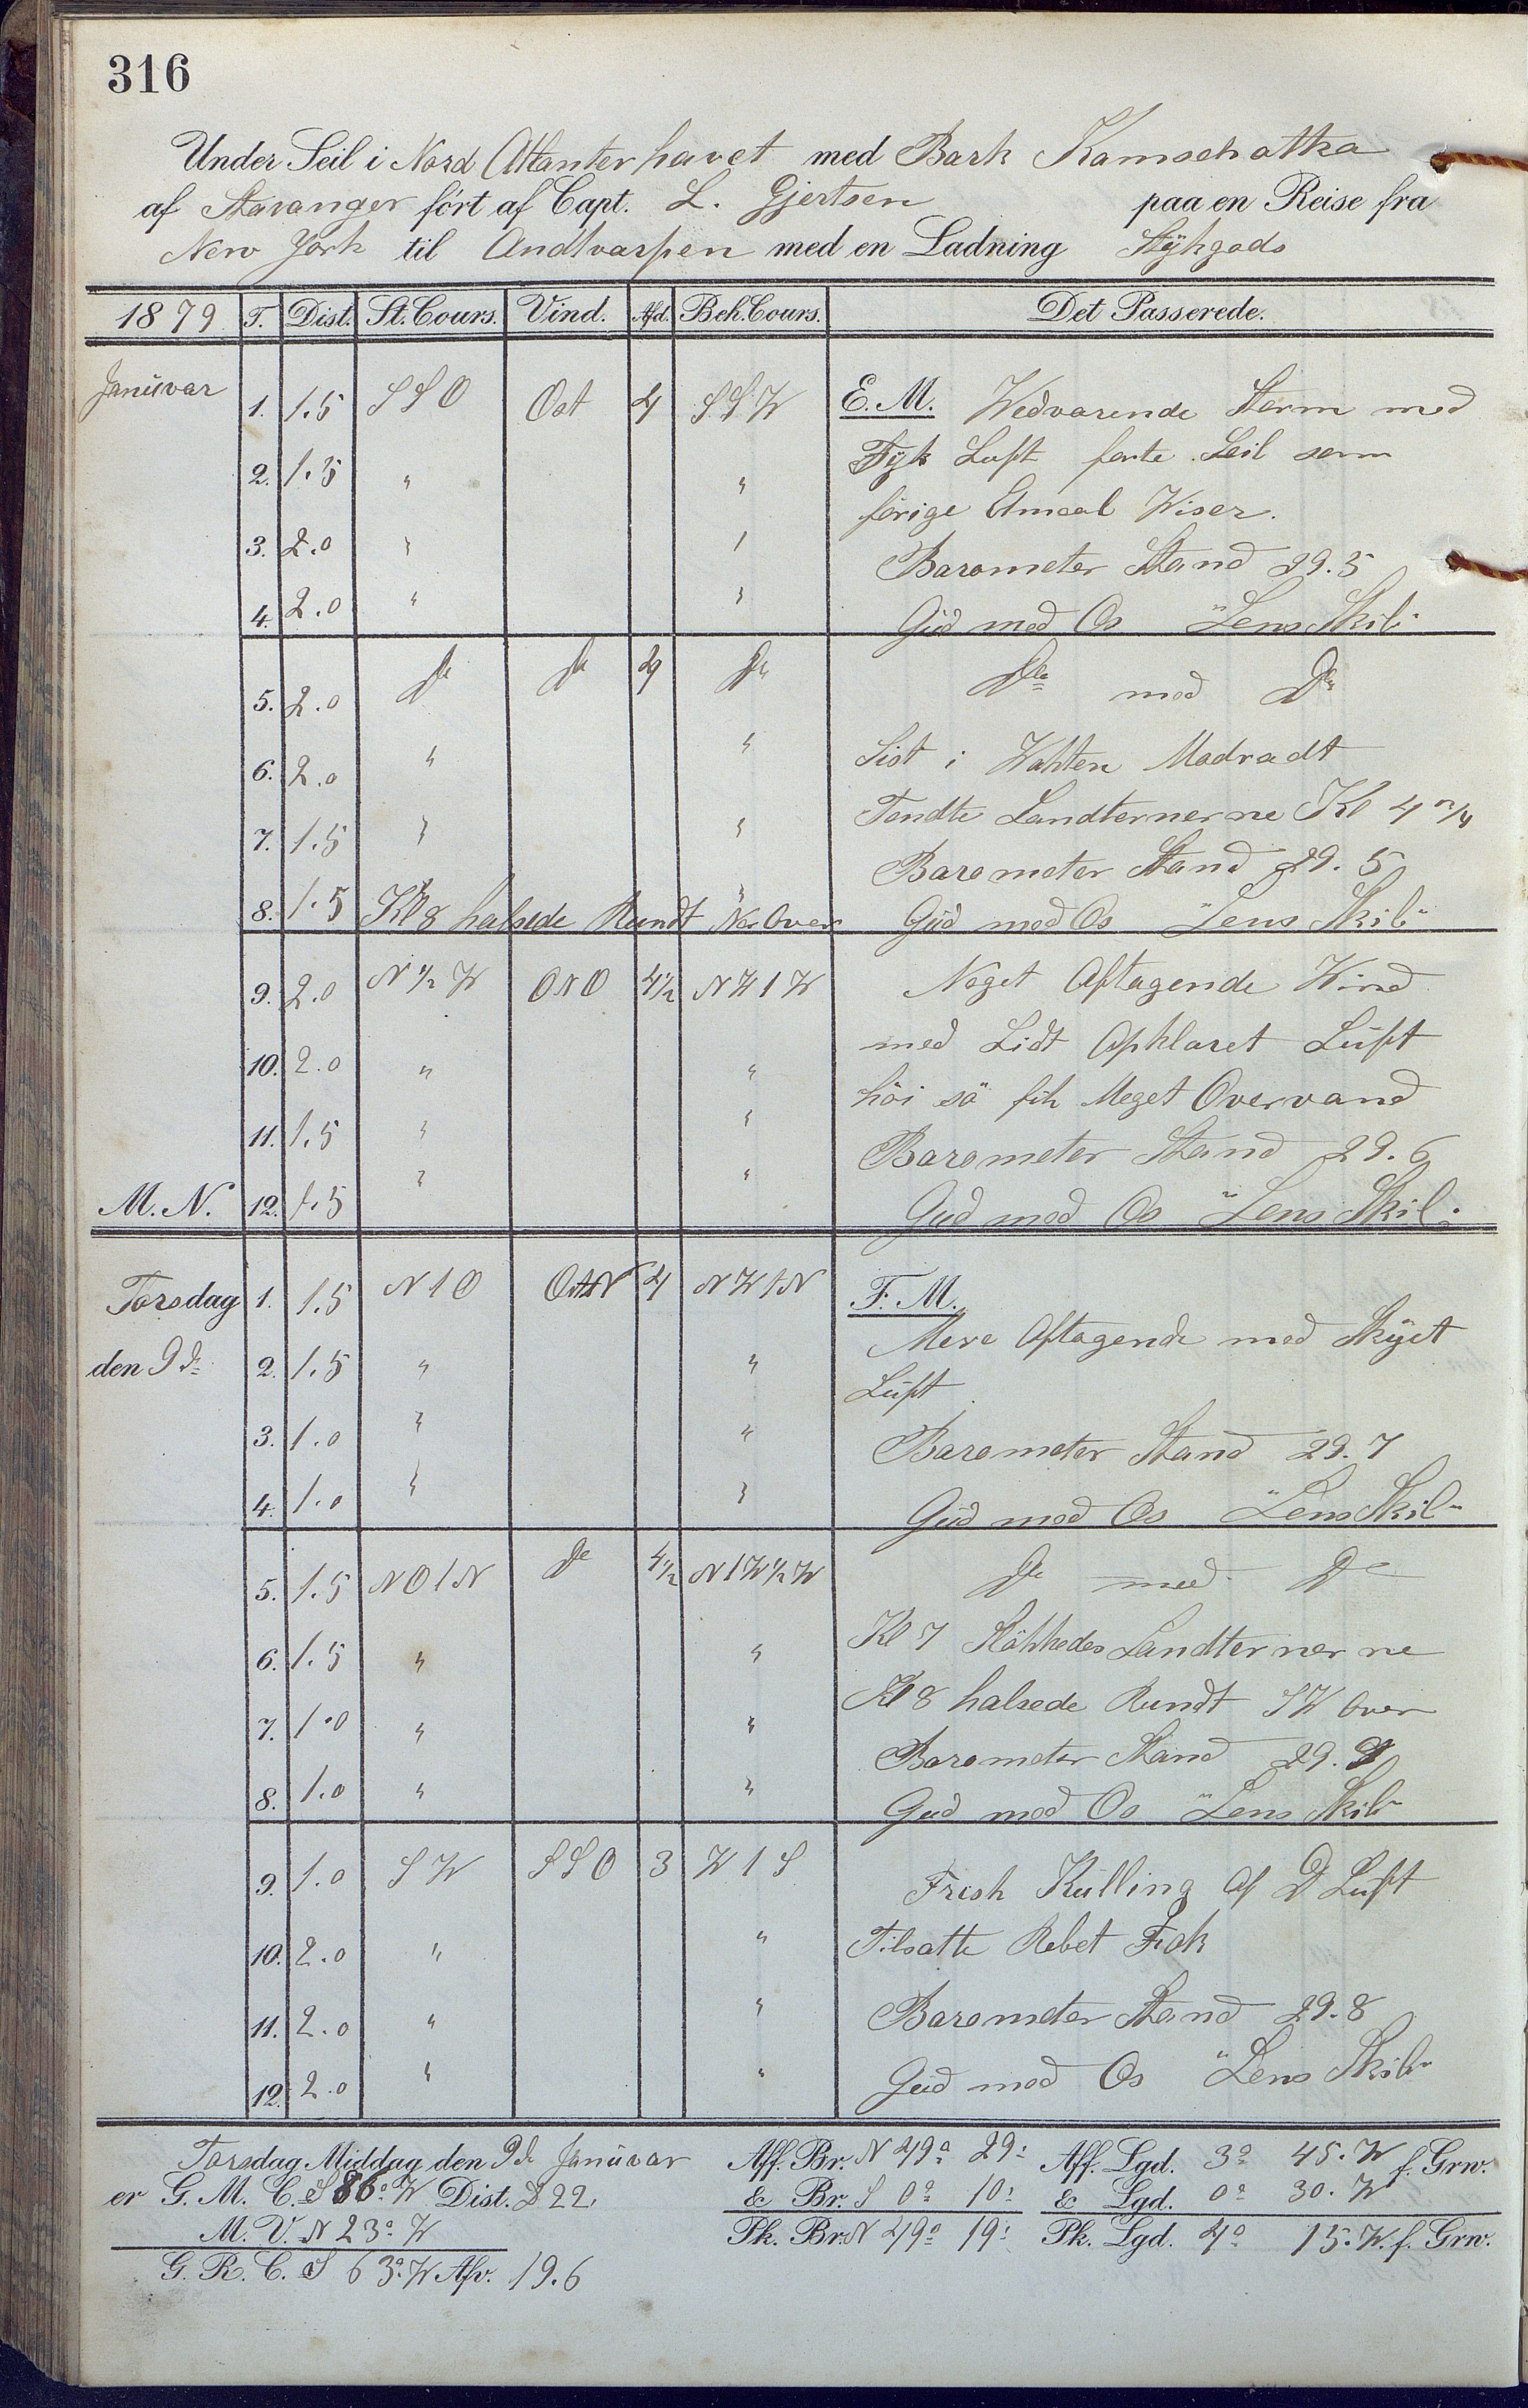 316
Under Seil i Nord Atlanterhavet med Bark Kamschatka
af Stavanger fört af Capt. L. Gjertsen paa en Reise fra
New York til Andtvarpen med en Ladning Stÿkgods
1879 T. Dist. St. Cours. Vind. Afd. Beh. Cours. Det Passerede.
Janüvar 1. 1.5 SSO Ost 4 SSW E. M. Wedvarende Storm med
2. 1.5 " " Tyk Luft förte Seil som
förige Etmaal Wiser.
3. 2.0 " " Barometer Stand 29.5
4. 2.0 " " Güd med Os "Lens Skib"
5. 2.0 Do Do 4 Do Do med Do
6. 2.0 " " Sist i Wakten Modradt
7. 1.5 " " Tendte Landternerne Kl 4
Barometer Stand 29.5
8. 1.5 Kl 8 halsede Rundt Nor Over " Güd med Os "Lens Skib"
9. 2.0 N 1/2 W ONO 4 1/2 NW 1 W Noget Aftagende Wind
10. 2.0 " " med Lidt Opklaret Lüft
höi sö fik Meget Overvand
11. 1.5 " " Barometer Stand 29.6
M. N. 12. 1.5 " " Gud med Os "Lens Skib"
Torsdag 1. 1.5 N 1 O OstN 4 NW 1 N F. M.
Mere Aftagende med Skÿet
den 9de 2. 1.5 " " Lüft
3. 1.0 " " Barometer Stand 29.7
4. 1.0 " " Güd med Os "Lens Skib"
5. 1.5 NO 1 N Do 4 1/2 N 1 W 1/2 W Do med Do
6. 1.5 " " Kl 7 Slökkedes Landternerne
7. 1.0 " " Kl 8 halsede Rundt SW Over
Barometer Stand 29.
8. 1.0 " " Gud med Os "Lens Skib"
9. 1.0 SW SSO 3 W 1 S Frisk Külling af Do Luft
10. 2.0 " " Tilsatte Rebet Fok
11. 2.0 " " Barometer Stand 29.8
12. 2.0 " " Güd med Os "Lens Skib"
Torsdag Middag den 9de Janüvar Aff. Br. N 49° 29' Aff. Lgd. 3° 45' W f. Grw.
er G. M. C. S 86° W Dist. D 22. & Br. S 0° 10' & Lgd. 0° 30' W
M. V. N 23° W Pk. Br. N 49° 19' Pk. Lgd. 4° 15' W. f. Grw.
G. R. C. S 63° W Afv. 19.6